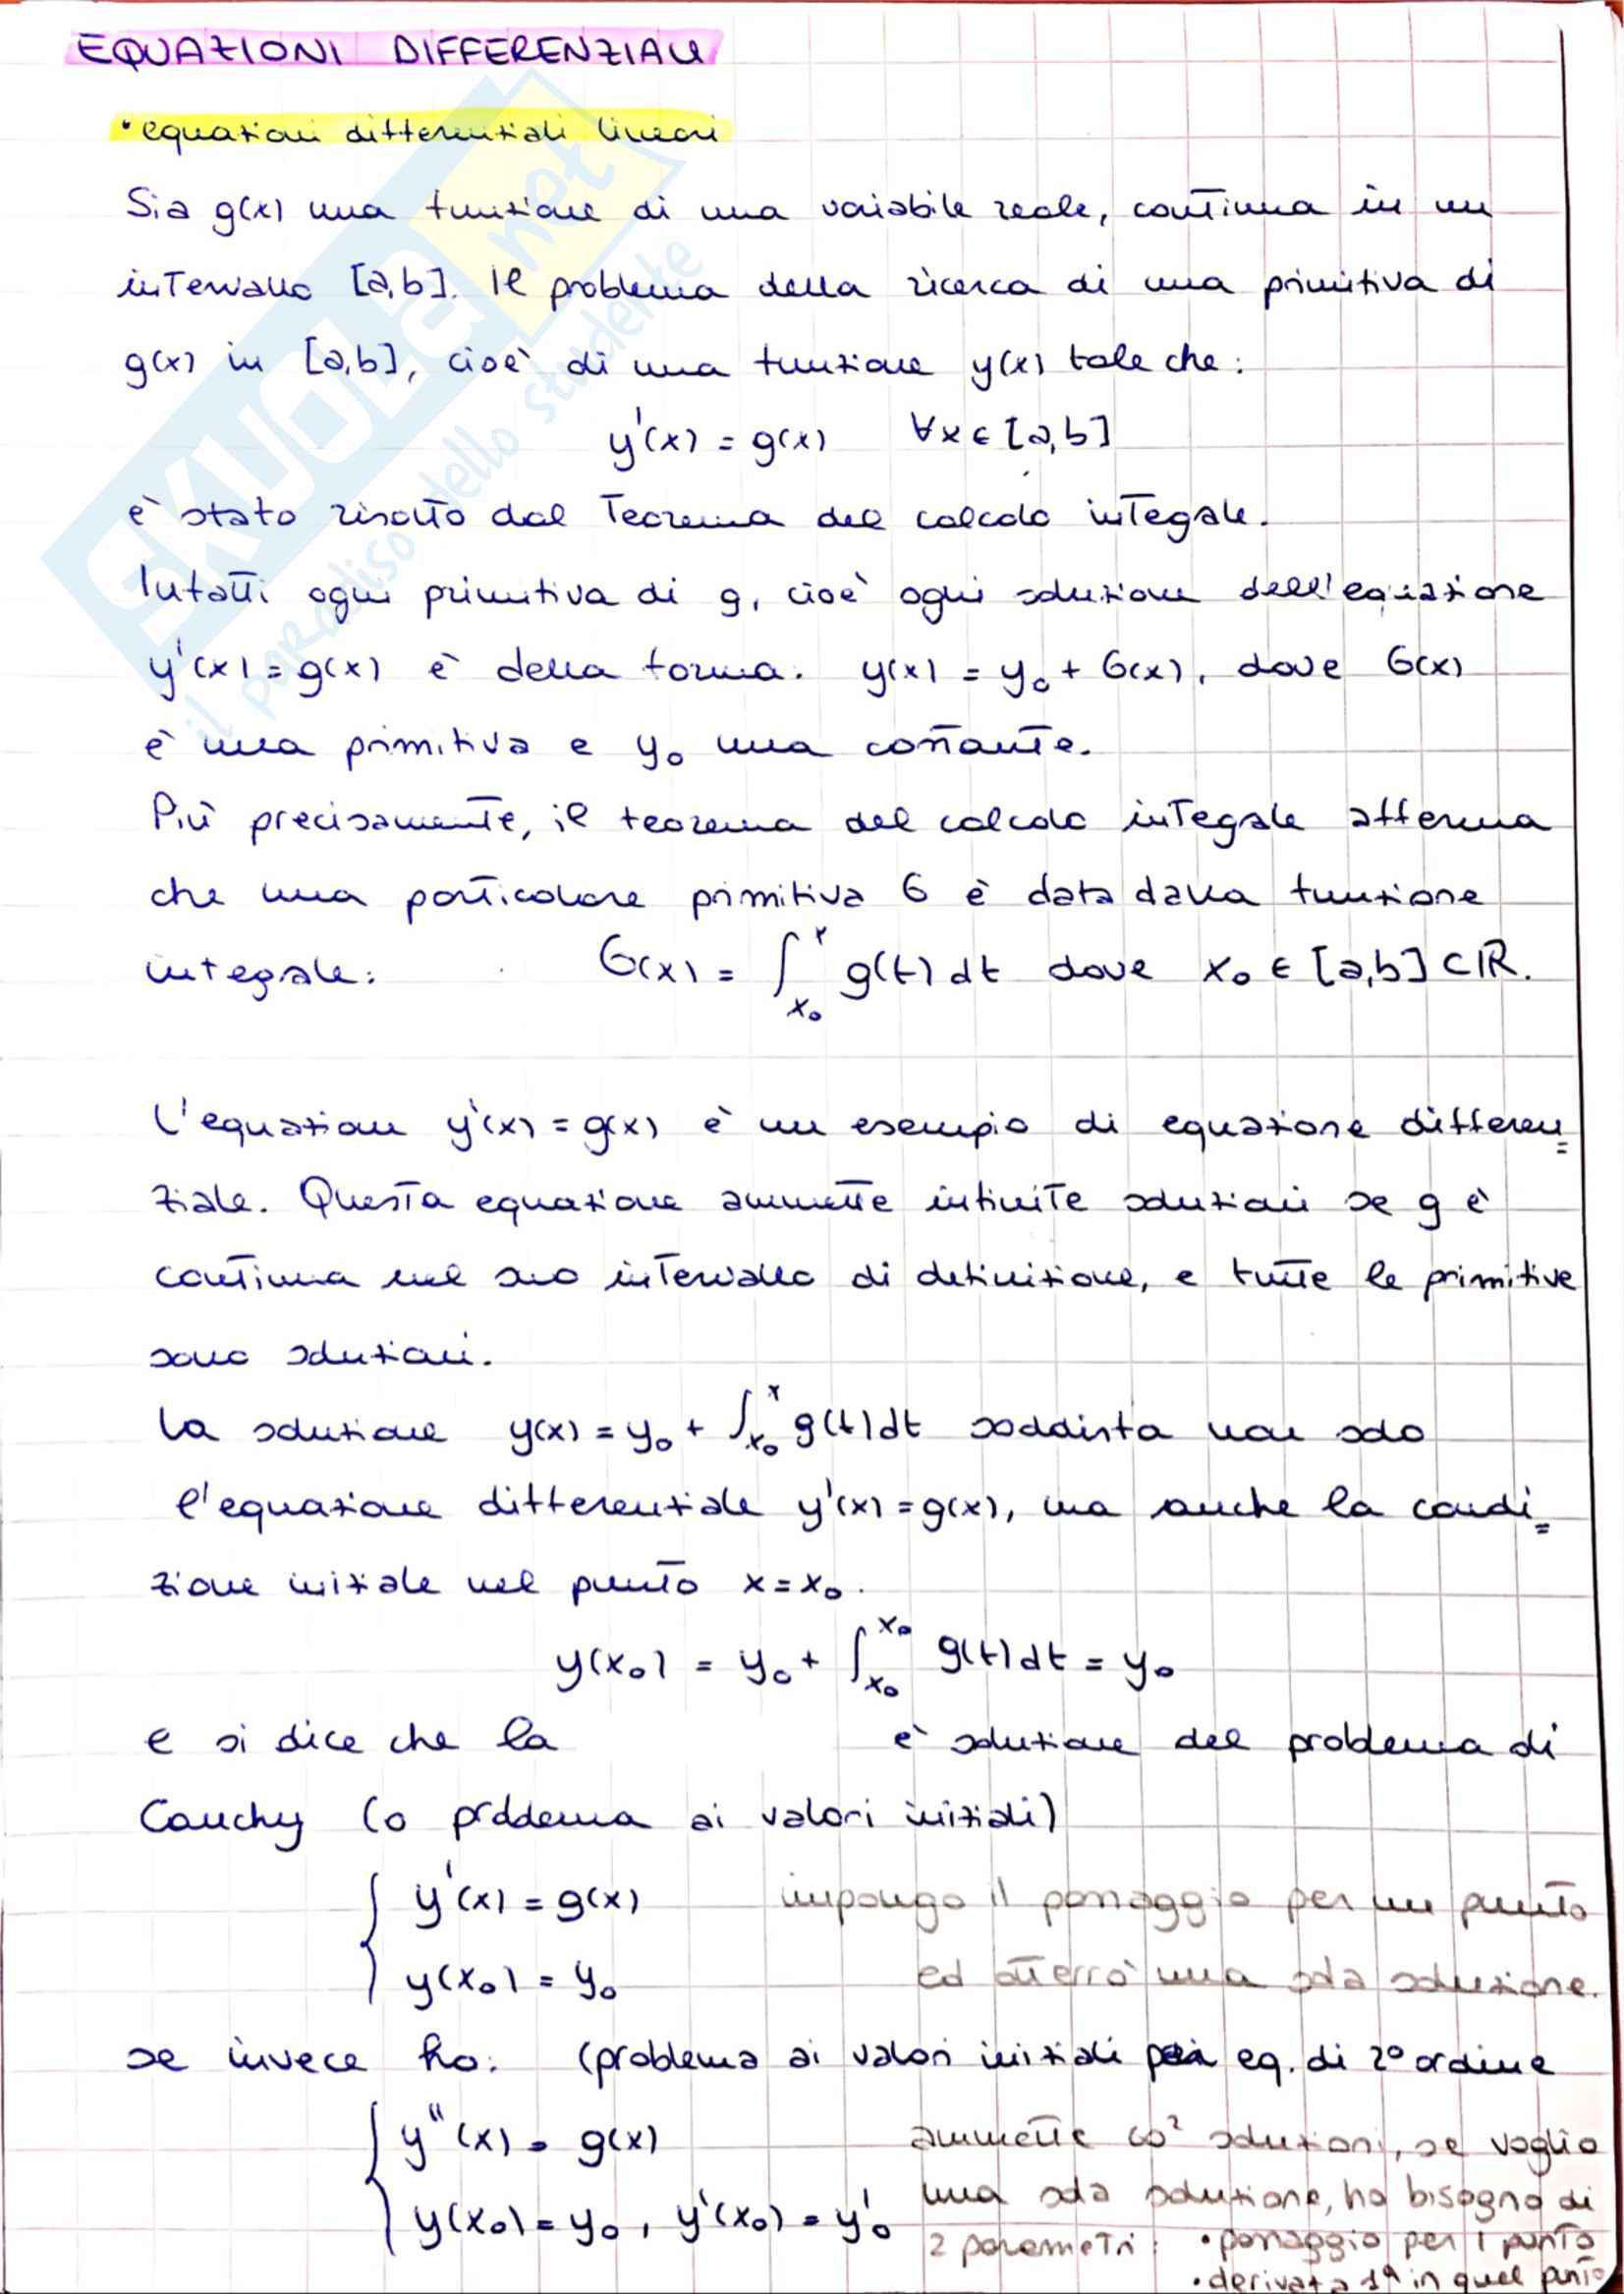 EQUAZIONI DIFFERENZIALI
• equazioni differenziali lineari
Sia g(x) una funzione di una variabile reale, continua in un
intervallo [a,b]. Il problema della ricerca di una primitiva di
g(x) in [a,b], cioè di una funzione y(x) tale che:
y'(x) = g(x) ∀x ∈ [a,b]
è stato risolto dal Teorema del calcolo integale.
Infatti ogni primitiva di g, cioè ogni soluzione dell'equazione
y'(x) = g(x) è della forma: y(x) = y₀ + G(x), dove G(x)
è una primitiva e y₀ una costante.
Più precisamente, il teorema del calcolo integale afferma
che una particolare primitiva G è data dalla funzione
integale: G(x) = ∫_{x₀}^{x} g(t) dt dove x₀ ∈ [a,b] ⊂ ℝ.
L'equazione y'(x) = g(x) è un esempio di equazione differen=
ziale. Questa equazione ammette infinite soluzioni se g è
continua nel suo intervallo di definizione, e tutte le primitive
sono soluzioni.
La soluzione y(x) = y₀ + ∫_{x₀}^{x} g(t)dt soddisfa non solo
l'equazione differenziale y'(x) = g(x), ma anche la condi=
zione iniziale nel punto x = x₀.
y(x₀) = y₀ + ∫_{x₀}^{x₀} g(t)dt = y₀
e si dice che la è soluzione del problema di
Cauchy (o problema ai valori iniziali)
{ y'(x) = g(x) impongo il passaggio per un punto
y(x₀) = y₀ ed otterrò una sola soluzione.
se invece ho: (problema ai valori iniziali per eq. di 2° ordine
{ y''(x) = g(x) ammette ∞² soluzioni, se voglio
una sola soluzione, ho bisogno di
y(x₀) = y₀, y'(x₀) = y'₀ 2 parametri: • passaggio per 1 punto
• derivata 1ª in quel punto
SKUOLA.net
il paradiso dello studente